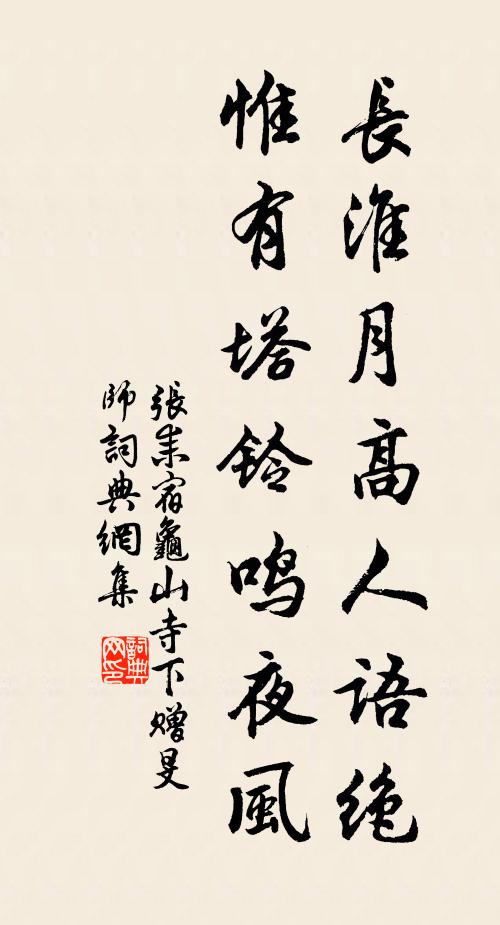 長淮月高人語絶
惟有塔鈴鳴夜風
張耒宿龜山寺下贈旻
師詞典網集
詞典
网印